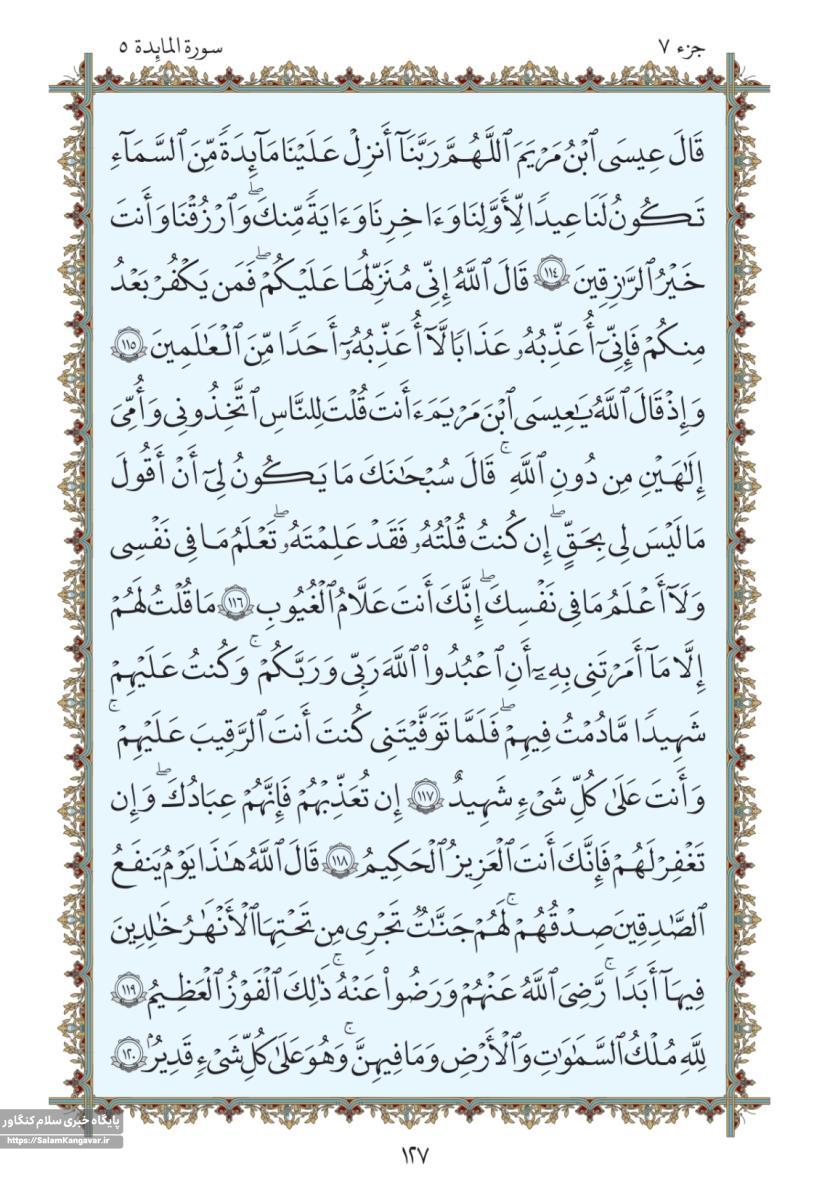 جزء ٧
سورة المايِدة ٥
قَالَ عِيسَى ٱبْنُ مَرْيَمَ ٱللَّهُمَّ رَبَّنَآ أَنزِلْ عَلَيْنَا مَآئِدَةً مِّنَ ٱلسَّمَآءِ
تَكُونُ لَنَا عِيدًا لِّأَوَّلِنَا وَءَاخِرِنَا وَءَايَةً مِّنكَ ۖ وَٱرْزُقْنَا وَأَنتَ
خَيْرُ ٱلرَّٰزِقِينَ ١١٤ قَالَ ٱللَّهُ إِنِّى مُنَزِّلُهَا عَلَيْكُمْ ۖ فَمَن يَكْفُرْ بَعْدُ
مِنكُمْ فَإِنِّىٓ أُعَذِّبُهُۥ عَذَابًا لَّآ أُعَذِّبُهُۥٓ أَحَدًا مِّنَ ٱلْعَٰلَمِينَ ١١٥
وَإِذْ قَالَ ٱللَّهُ يَٰعِيسَى ٱبْنَ مَرْيَمَ ءَأَنتَ قُلْتَ لِلنَّاسِ ٱتَّخِذُونِى وَأُمِّىَ
إِلَٰهَيْنِ مِن دُونِ ٱللَّهِ ۚ قَالَ سُبْحَٰنَكَ مَا يَكُونُ لِىٓ أَنْ أَقُولَ
مَا لَيْسَ لِى بِحَقٍّ ۖ إِن كُنتُ قُلْتُهُۥ فَقَدْ عَلِمْتَهُۥ ۖ تَعْلَمُ مَا فِى نَفْسِى
وَلَآ أَعْلَمُ مَا فِى نَفْسِكَ ۖ إِنَّكَ أَنتَ عَلَّٰمُ ٱلْغُيُوبِ ١١٦ مَا قُلْتُ لَهُمْ
إِلَّا مَآ أَمَرْتَنِى بِهِۦٓ أَنِ ٱعْبُدُوا۟ ٱللَّهَ رَبِّى وَرَبَّكُمْ ۚ وَكُنتُ عَلَيْهِمْ
شَهِيدًا مَّا دُمْتُ فِيهِمْ ۖ فَلَمَّا تَوَفَّيْتَنِى كُنتَ أَنتَ ٱلرَّقِيبَ عَلَيْهِمْ ۚ
وَأَنتَ عَلَىٰ كُلِّ شَىْءٍ شَهِيدٌ ١١٧ إِن تُعَذِّبْهُمْ فَإِنَّهُمْ عِبَادُكَ ۖ وَإِن
تَغْفِرْ لَهُمْ فَإِنَّكَ أَنتَ ٱلْعَزِيزُ ٱلْحَكِيمُ ١١٨ قَالَ ٱللَّهُ هَٰذَا يَوْمُ يَنفَعُ
ٱلصَّٰدِقِينَ صِدْقُهُمْ ۚ لَهُمْ جَنَّٰتٌ تَجْرِى مِن تَحْتِهَا ٱلْأَنْهَٰرُ خَٰلِدِينَ
فِيهَآ أَبَدًا ۚ رَّضِىَ ٱللَّهُ عَنْهُمْ وَرَضُوا۟ عَنْهُ ۚ ذَٰلِكَ ٱلْفَوْزُ ٱلْعَظِيمُ ١١٩
لِلَّهِ مُلْكُ ٱلسَّمَٰوَٰتِ وَٱلْأَرْضِ وَمَا فِيهِنَّ ۚ وَهُوَ عَلَىٰ كُلِّ شَىْءٍ قَدِيرٌۢ ١٢٠
پایگاه خبری سلام کنگاور
https://SalamKangavar.ir
١٢٧